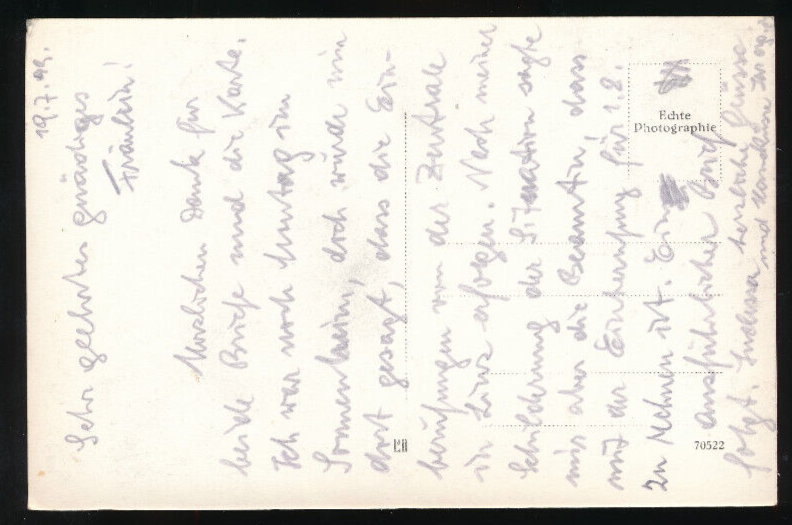 19.7.49.
Sehr geehrtes gnädiges
Fräulein!
Herzlichen Dank für
beide Briefe und die Karte.
Ich war noch Montag im
Sonnenheim, doch wurde mir
dort gesagt, dass die Ein-
berufungen von der Zentrale
in Linz erfolgen. Nach meiner
Schilderung der Situation sagte
mir aber die Beamtin, dass
mit der Einberufung für 1.8.
zu rechnen ist. Ein
ausführlicher Brief
folgt. Indessen herzliche Grüsse
und Handküsse Ihr
Echte
Photographie
70522